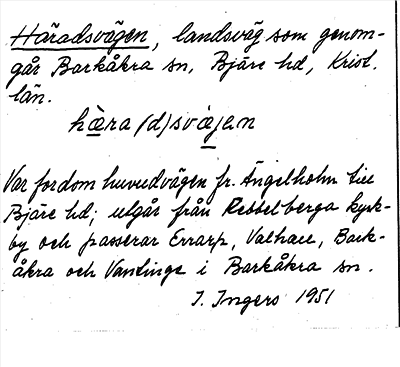 Häradsvägen, landsväg som genom-
går Barkåkra sn, Bjäre hd, Krist.
län.
hæ̀ra(d)svæ̀jen
Var fordom huvudvägen fr. Ängelholm till
Bjäre hd; utgår från Rebbelberga kyrk-
by och passerar Errarp, Valhall, Bark-
åkra och Vantinge i Barkåkra sn.
I. Ingers 1951